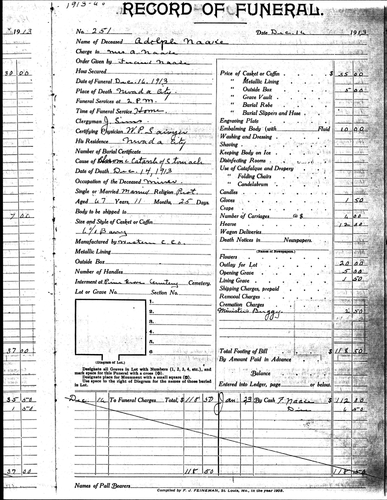 1913
RECORD OF FUNERAL.
No. 251 Date Dec. 16 1913
Name of Deceased Adolph Naake
Charge to Mrs A. Naake
Order Given by Naake
How Secured
Date of Funeral Dec. 16, 1913
Place of Death Nevada City
Funeral Services at 2 P.M.
Time of Funeral Service Home
Clergyman J. Sims
Certifying Physician W.P. Sawyer
His Residence Nevada City
Number of Burial Certificate
Cause of Chronic Catarrh of Stomach
Date of Death Dec. 14, 1913
Occupation of the Deceased Miner
Single or Married Married Religion Prot.
Aged 67 Years, 11 Months, 25 Days
Body to be shipped to
Size and Style of Casket or Coffin
Manufactured by Western C. Co.
Metallic Lining
Outside Box
Number of Handles
Interment at Pine Grove Cemetery Cemetery.
Lot or Grave No. Section No.
1.
2.
3.
4.
5.
6.
(Diagram of Lot.)
Designate all Graves in Lot with Numbers (1, 2, 3, 4, etc.), and mark space for this Funeral with a cross (X).
Designate place for Monument with a small square (□).
Use space in the right of Diagram for names of those buried in Lot.
Price of Casket or Coffin $ 35 00
" Metallic Lining
" Outside Box 5 00
" Grave Vault
" Burial Robe
" Burial Slippers and Hose
Engraving Plate
Embalming Body (with Fluid 10 00
Washing and Dressing
Shaving
Keeping Body on Ice
Disinfecting Rooms
Use of Catafalque and Drapery
" Folding Chairs
" Candelabrum
Candles
Gloves 1 50
Crape
Number of Carriages @ $ 00
Hearse 12 00
Wagon Deliveries
Death Notices in Newspapers.
(Names of Newspapers.)
Flowers
Outlay for Lot 20 00
Opening Grave 5 00
Lining Grave 1 50
Shipping Charges, prepaid
Removal Charges
Cremation Charges
Minister Buggy 2 50
Total Footing of Bill $ 118 50
By Amount Paid in Advance
Balance
Entered into Ledger, page or below.
Dec 16 To Funeral Charges Total, $ 118 50 Jan 23 By Cash F. Naake $ 112 00
Disc 6 50
118 50 118 50
Names of Pall Bearers
Compiled by F. J. FEINEMAN, St. Louis, Mo., in the year 1902.